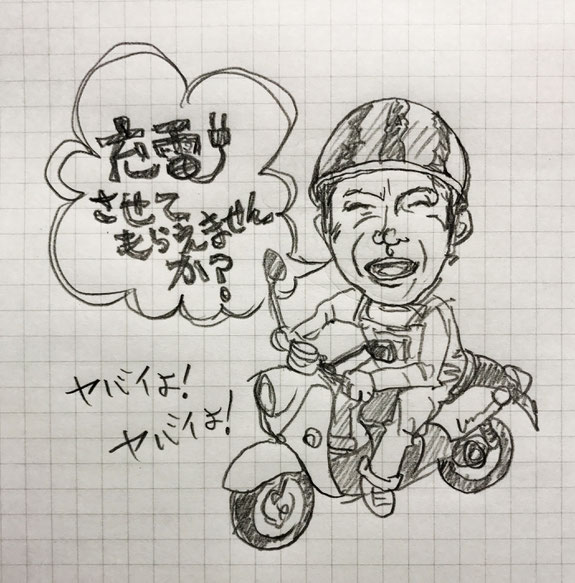 充電
させて
もらえません
か?
ヤバイよ!
ヤバイよ!